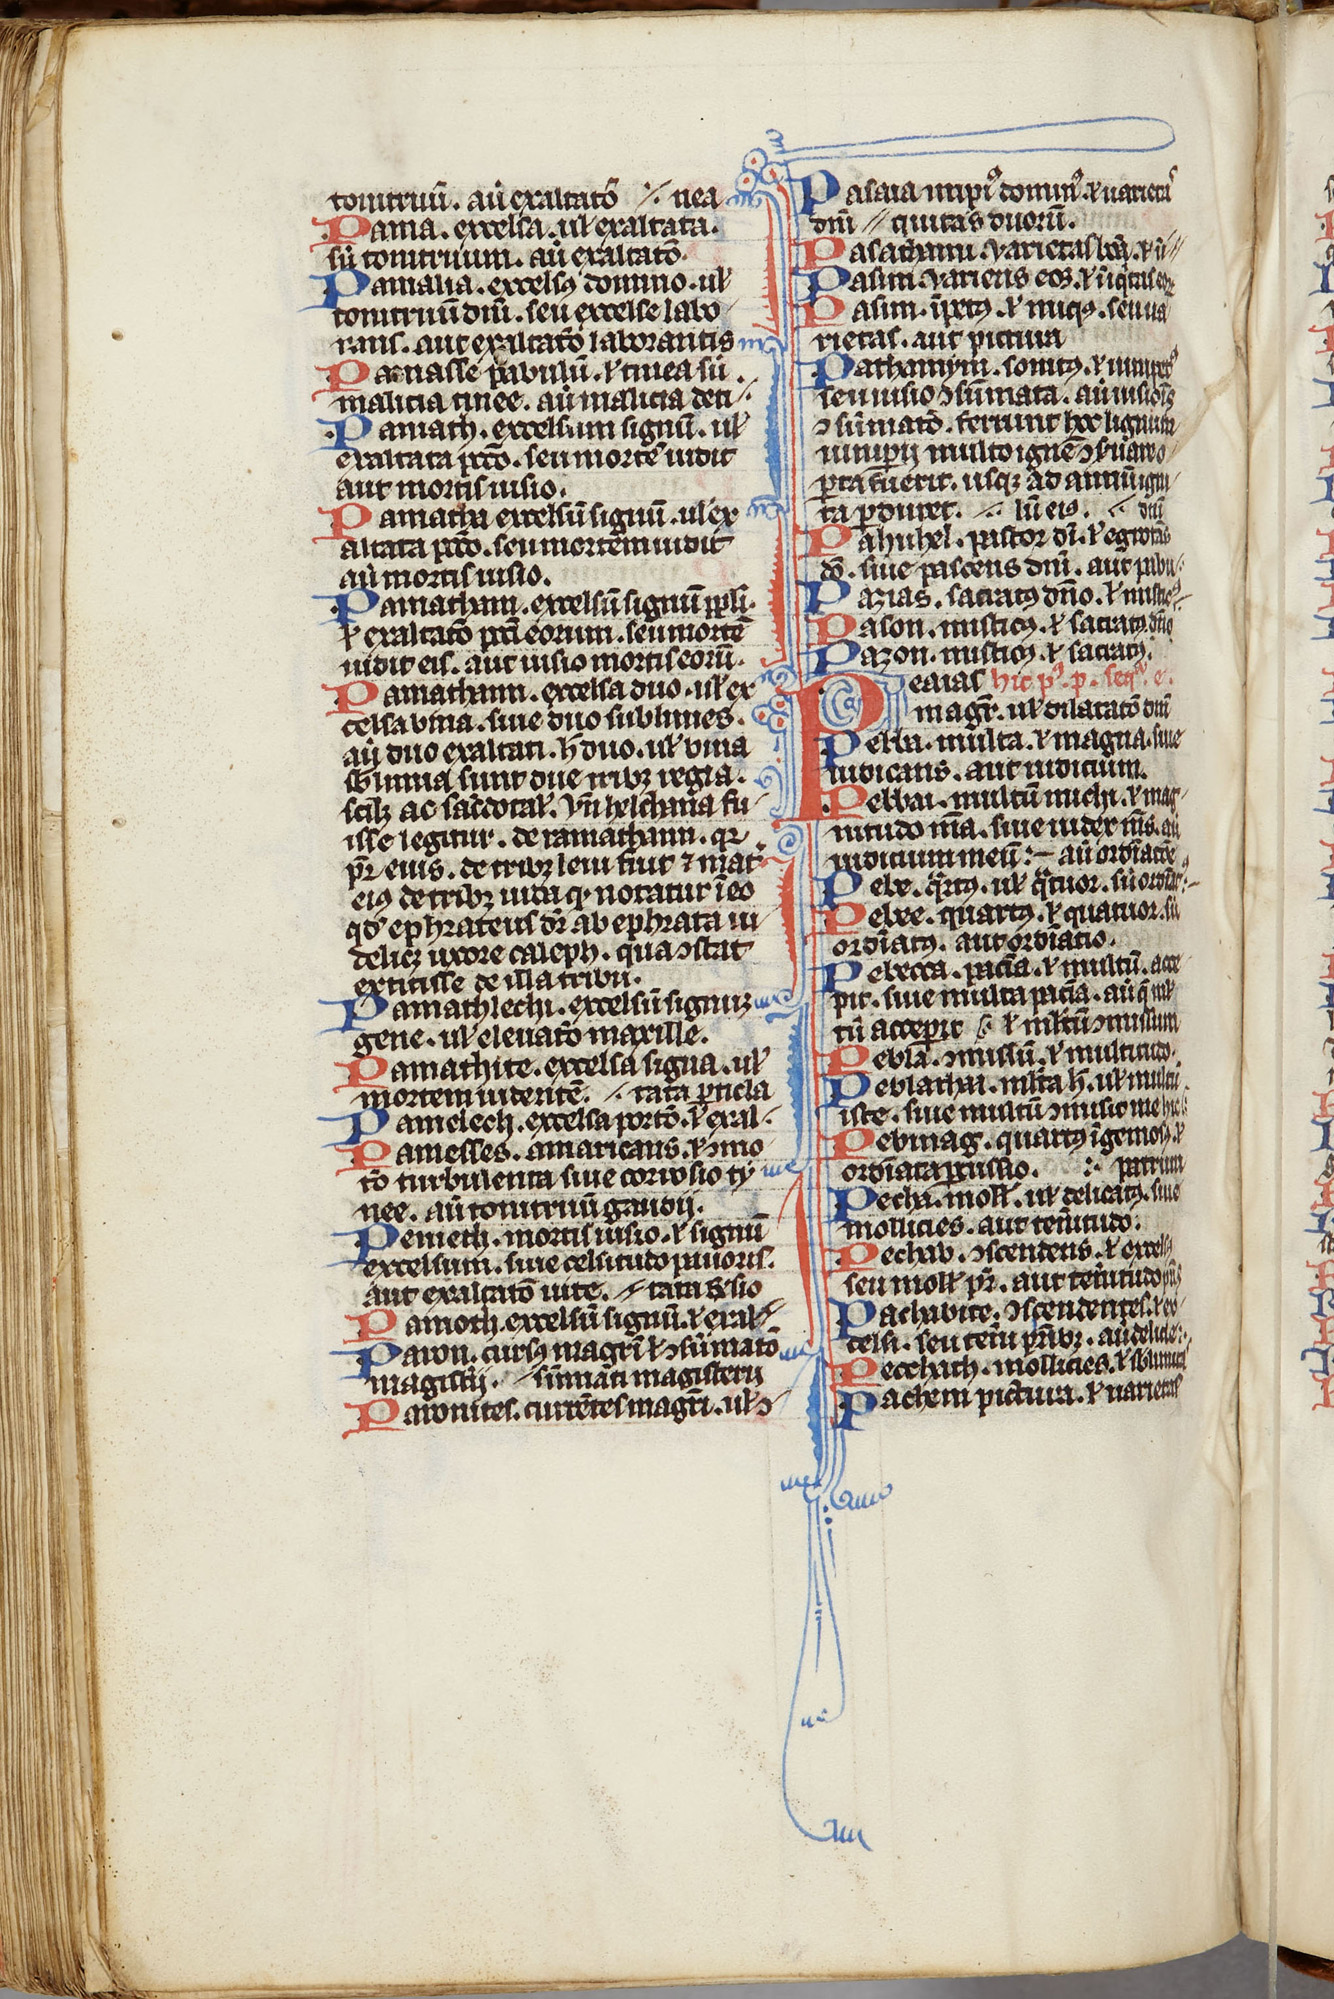 tonitruū. aū exaltatō ⁒ nea
Pama. excelsa. ul̄ exaltata.
siū tonitruum. aū exaltatō.
Pamalia. excelsꝰ domino. ul̄
tonitruū dn̄i. seu excelse labo
rans. aut exaltatō laborantis
Pamasse pabulū. ul̄ tinea siū
malicia tinee. aū malicia deti
Pamath. excelsum signū. ul̄
exaltata pctō. seu mortē uidit
aut mortis uisio.
Pamatha excelsū signū. ul̄ ex
altata pctō. seu mortem uidit
aū mortis uisio.
Pamatham. excelsū signū ppl̄i.
ul̄ exaltatō pcti eorum. seu mortē
uidit eis. aut uisio mortis eorū.
Pamathaim. excelsa duo. ul̄ ex
celsa bina. siue duo sublimes.
aū duo exaltati. h̄ duo. ul̄ bina
sublimia sunt due tribꝫ regia.
scilꝫ ac sac̄dotal̄. Vn̄ helchana fu
isse legitur. de ramathaim. qꝛ
pr̄ eius. de tribꝫ leui fuit ⁊ mat̄
eiꝰ de tribꝫ iuda qd̄ notatur ī eo
qd̄ ephrateus dr̄ ab ephrata ui
delicꝫ uxore caleph. qua ↄstat
extitisse de illa tribu.
Pamathlechi. excelsū signū
gene. ul̄ eleuatō maxille.
Pamathite. excelsa signa. ul̄
mortem uidentē. ⁒ tata ꝑticla
Pamelech. excelsa portō. ul̄ exal
Pamesses. amaricans. ul̄ ↄmo
tō turbulenta siue corrosio ty
nee. aū tonitruū gaudij.
Pemeth. mortis uisio. ul̄ signū
excelsum. siue celsitudo pauoris.
aut exaltatō uite.
Pamoth. excelsū signū. ul̄ exal
Pamon. cursꝰ magrī ul̄ ↄsūmatō
magistij. sūmati magisterij
Pamonites. currētes magrī. ul̄ ↄ
Pasaia dn̄i ⫽ quitas duorū.
Pasathaim. varietas
Pasim. variens eos.
Pasim. seu ua
rietas. aut pictura
Pathamym. sonitꝰ. ul̄ iunipꝰ
seu uisio ↄsūmata. aū uisionis
ↄsūmatō. ferunt hoc lignum
iuniperi multo igne ↄseruato
usqꝫ ad annū igni
ta ꝑduret. ⁒ lū eis. dn̄i
Pahuhel. pastor dī. ul̄ egrotās
dō. siue pascens dn̄i. aut pabu
Pazias. sacratꝰ dn̄o. ul̄ misticꝰ
Pason. misticꝰ. ul̄ sacratꝰ dn̄o
Pazon. misticꝰ. ul̄ sacratꝰ.
Peaias hic pꝰ. p. seqͬ. e.
magr̄. ul̄ dilatatō dn̄i
Pella. multa. ul̄ magna. siue
iudicans. aut iudicium.
Pebbai. multū michi. ul̄ mag
nitudo mā. siue iudex mīs. aū
iudicium meū :– aū ordīatōe
Pebe. qͣrtꝰ. ul̄ qͣtuor. siū
Pebee. quartꝰ. ul̄ quatuor. siū
ordīatꝰ. aut ordīatio.
Pebecca. paciā. ul̄ multū. acce
pit. siue multa paciā. aū
tū accepit
Pebla. ↄmissū. ul̄ multitudo.
Peblathai. ml̄ta h̄. ul̄ multū
iste. siue multū
Pebmag. quartꝰ ul̄
ordīata ꝑcussio. patrum
Pecha. moll̄. ul̄ delicatꝰ. siue
mollicies. aut tenītudo.
Pechab. ↄscendens. ul̄ excelsꝰ
seu moll̄ pr̄. aut tenītudo pr̄is
Pachabite. ↄscendentes. ul̄ ex
celsi. seu
Pecchath. mollicies. ul̄
Pachem pictura. ul̄ uarietas